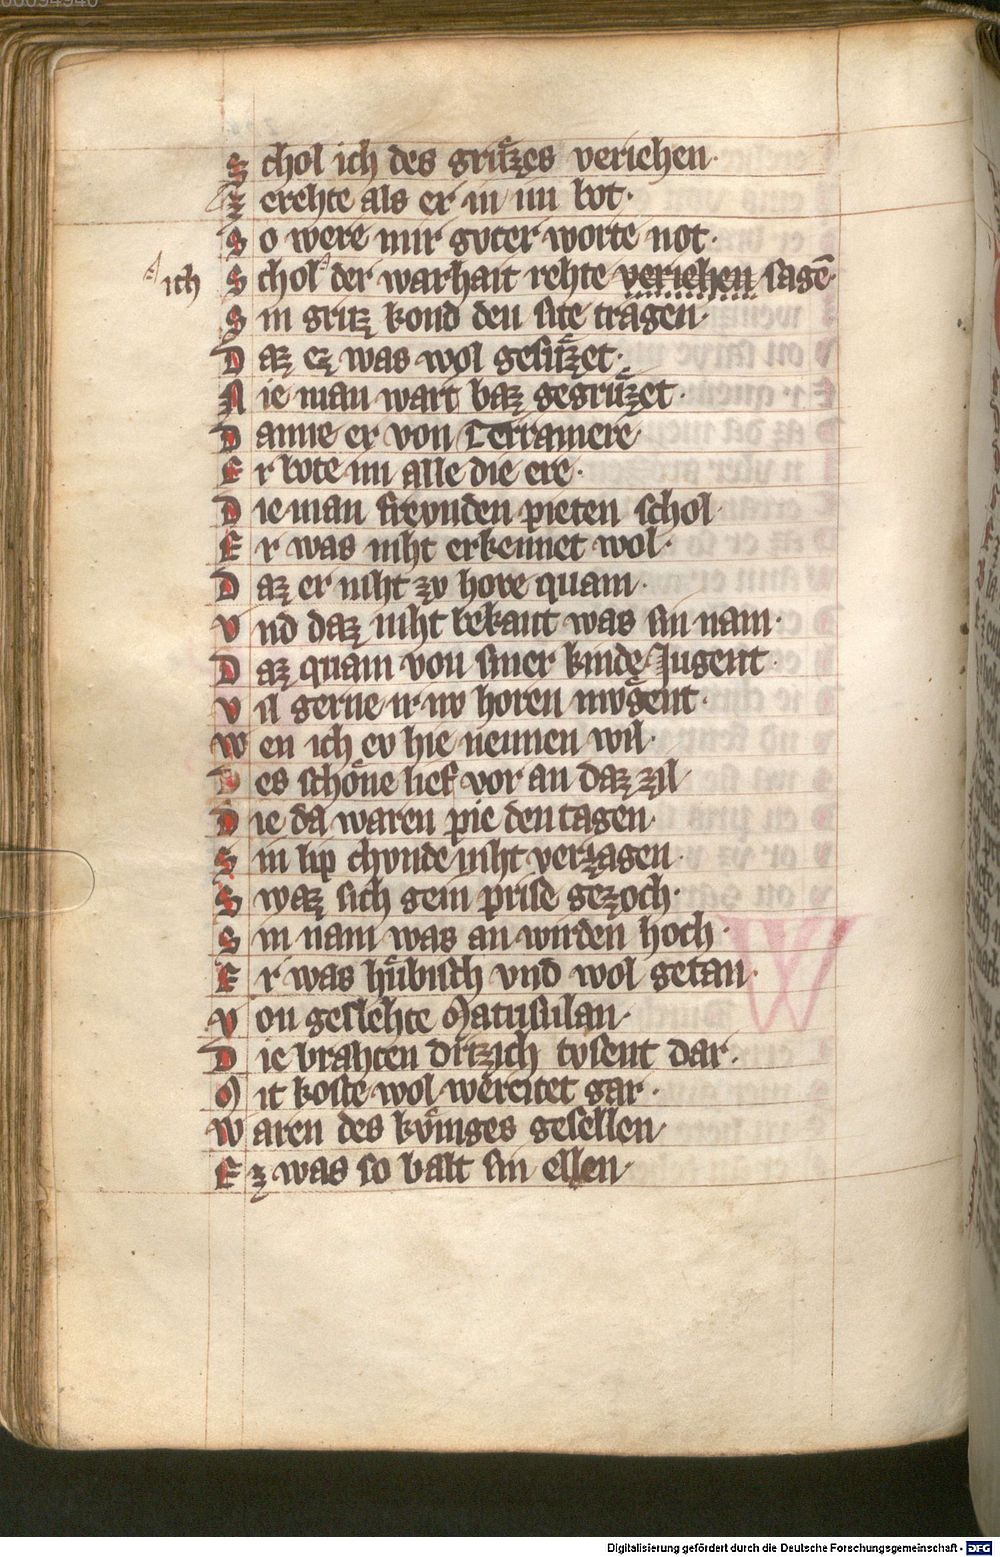 00094940
S chol ich des gruͤzzes veriehen·
Z erehte als er in im bot·
S o were mir gvter worte not·
ich S chol der warhait rehte veriehen sagē·
S in gruz kond den site tragen·
D az ez was wol gesuͤzzet·
N ie man wart baz gegruͤzzet·
D anne er von Terramere
E r bote im alle die ere·
D ie man frevnden pieten schol
E r was niht erkennet wol·
D az er niht zv hove quam·
V nd daz niht bekant was sin nam·
D az quam von siner kindę Jugent·
V il gerne ir nv horen mvͤgent·
W en ich ev hie nennen wil·
D es schoͤne lief vor an daz zil
D ie da waren pie den tagen·
S in lip chvnde niht verzagen·
S waz sich gein prise gezoch·
S in nam was an wirden hoch·
E r was huͤbisch vnd wol getan·
V on geslehte Matusulan·
D ie brahten dritzich tvsent dar·
M it koste wol wereitet gar·
W aren des kvͤniges gesellen
E z was so balt sin ellen·
Digitalisierung gefördert durch die Deutsche Forschungsgemeinschaft - DFG